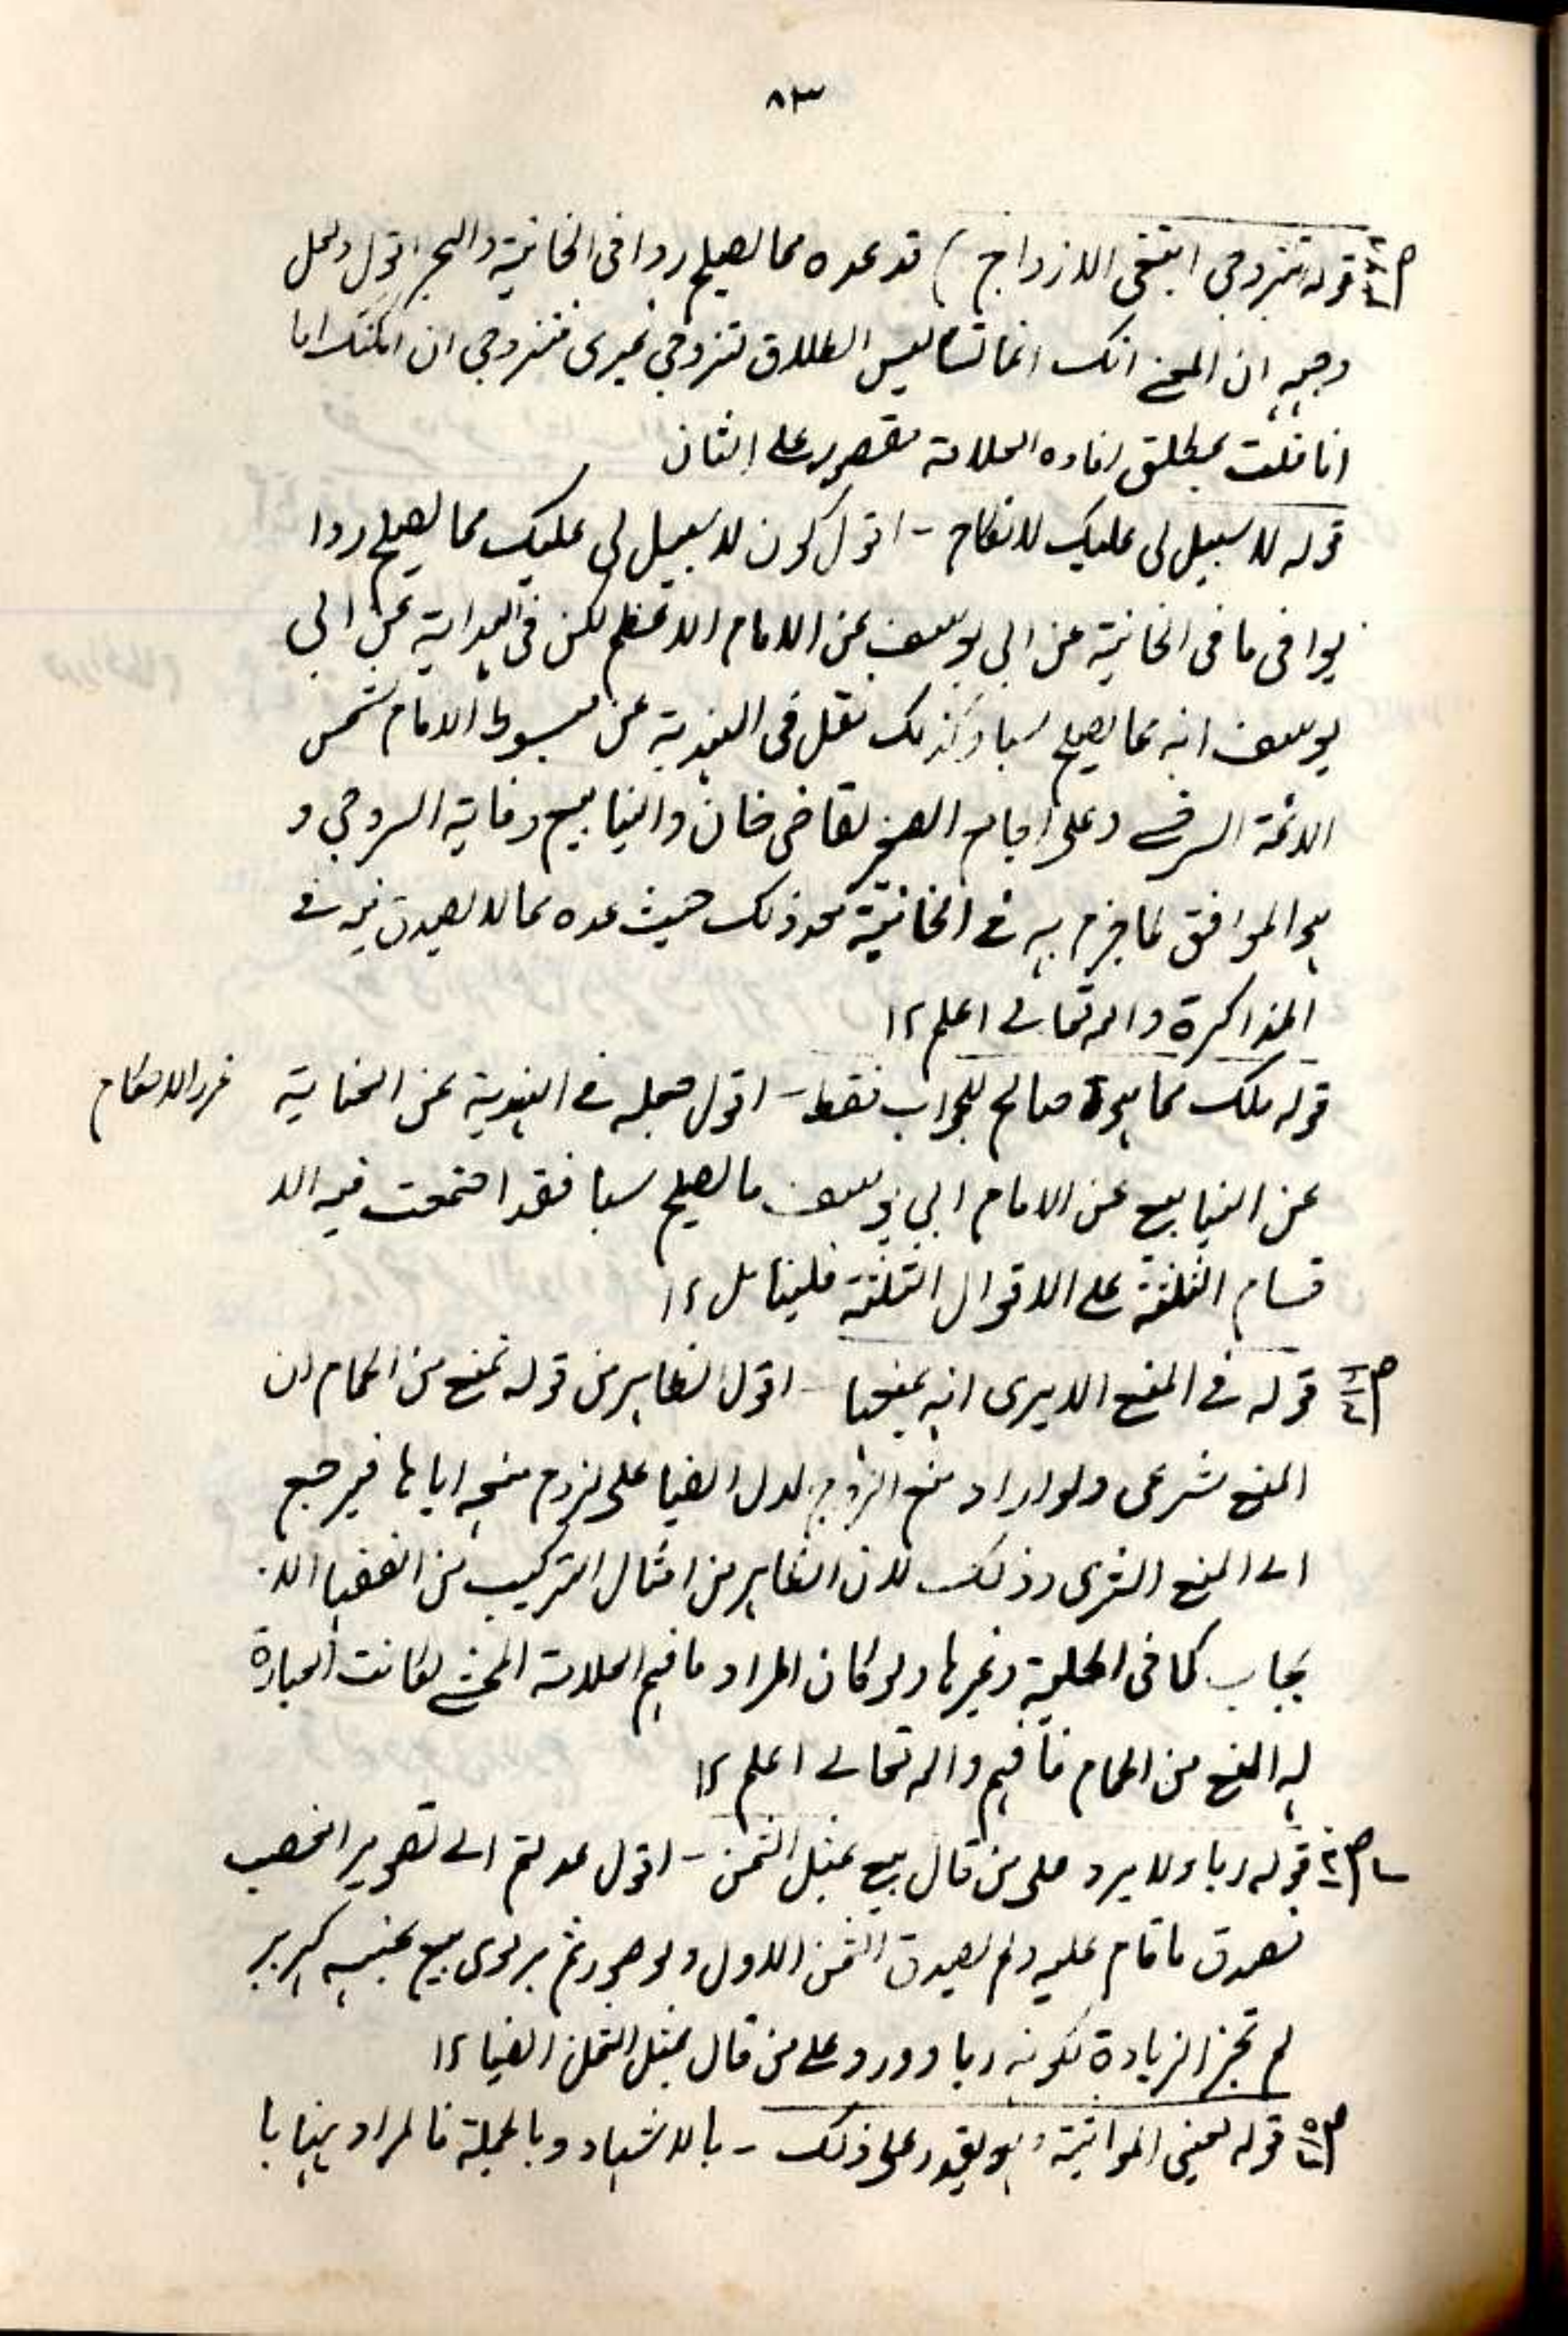 ٨٣
قوله تزوجي ابتغى الازواج) قد عده مما يصلح ردا فى الخانية والبحر اقول ولعل
وجهه ان المعنى انك انما تسالين الطلاق لتزوجي غيرى فتزوجي ان امكنك اما
انا فلست بمطلق افاده العلامة مقصور على الثان
قوله لا سبيل لى عليك لا نكاح - اقول كون لا سبيل لى عليك مما يصلح ردا
يوافى ما فى الخانية عن ابى يوسف عن الامام الاعظم لكن فى الهداية عن ابى
يوسف انه مما يصلح سبا وكذلك نقل فى الهندية عن مبسوط الامام شمس
الائمة السرخسى وعلى الجامع الصغير لقاضى خان والينابيع وغاية السروجى و
هو الموافق لما جزم به فى الخانية نحو ذلك حيث عده مما لا يصدق فيه فى
المذاكرة والله تعالى اعلم ١٢
قوله ملك مما هو صالح للجواب فقط - اقول جعله فى الهندية عن العناية
غرر الاحكام
عن الينابيع عن الامام ابي يوسف ما يصلح سبا فقد اجتمعت فيه الا
قسام الثلثة على الاقوال الثلثة فليتامل ١٢
قوله فى المنح الا يرى انه يمنعها - اقول الظاهر من قوله تمنع من الحمام ان
المنع شرعى ولو اراد منع الزوج لدل ايضا على لزوم منعه اياها فيرجع
الى المنع الشرعى وذلك لان الظاهر من امثال التركيب من الفقهاء الا
يجاب كما فى الحلية وغيرها ولو كان المراد ما فهم العلامة المحشى لكانت العبارة
له المنع من الحمام فافهم والله تعالى اعلم ١٢
قوله ربا ولا يرد على من قال بيع بمثل الثمن - اقول عدلتم الى تصوير الغصب
تصدق ما قام عليه ولم يصدق الثمن الاول ولو صورتم بربوى بيع بجنسه كبر ببر
لم تجز الزيادة لكونه ربا وورد على من قال بمثل الثمن ايضا ١٢
قوله يعني المواثبة وهو يقدر على ذلك - بالاشهاد وبالجملة فالمراد ههنا با